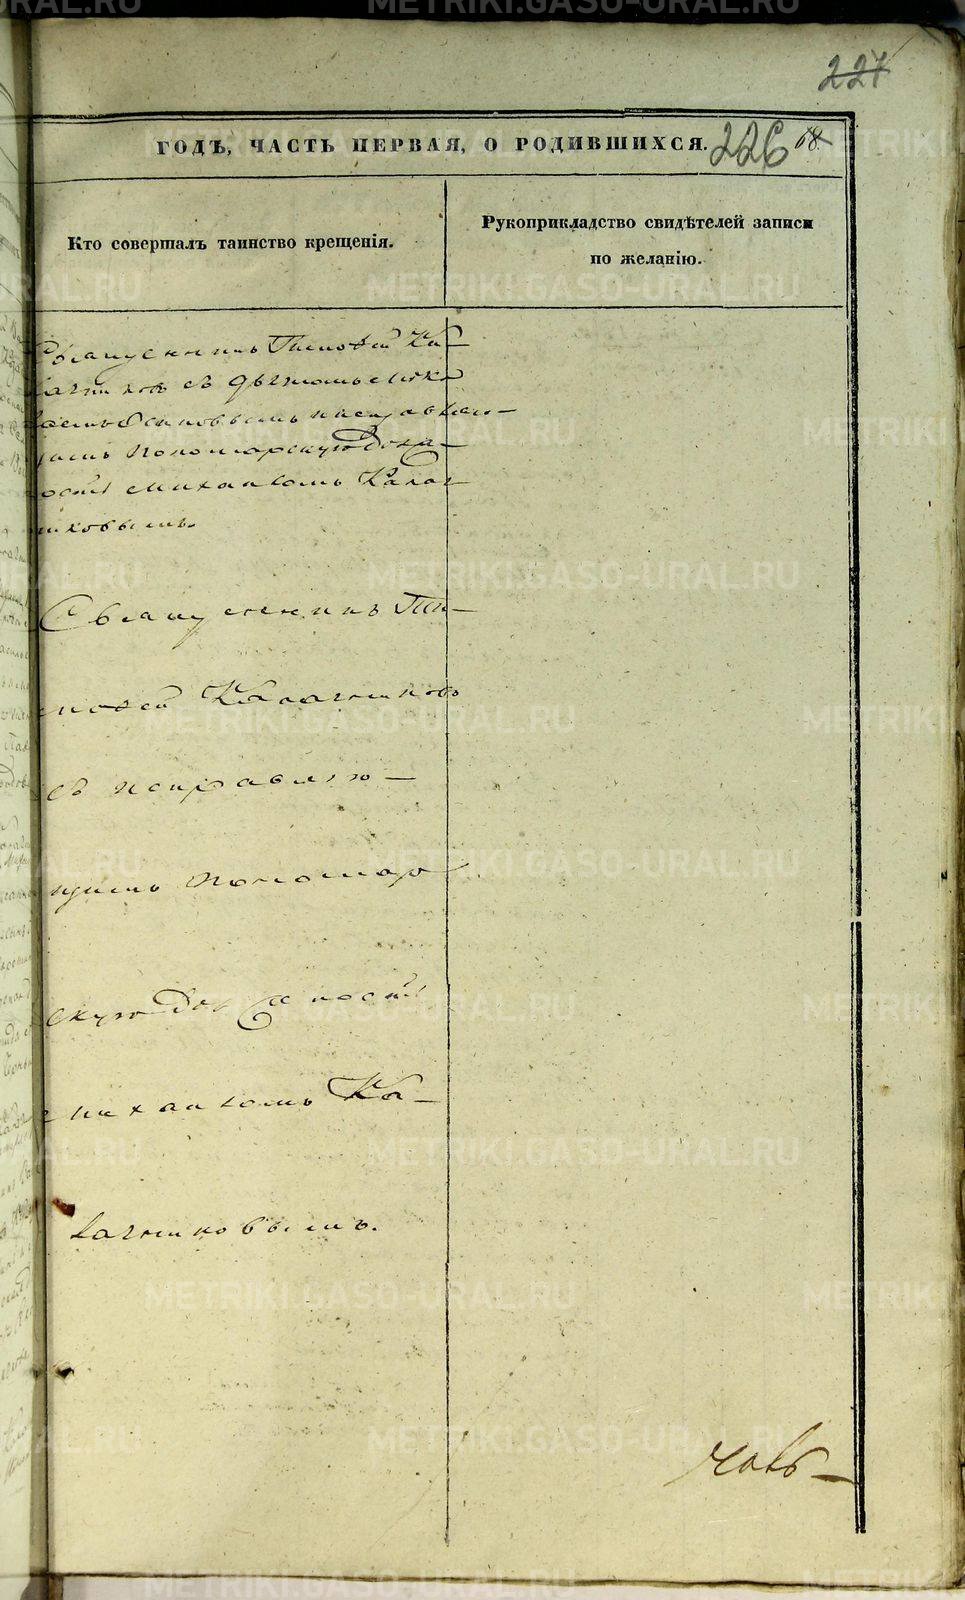 227
ГОДЪ, ЧАСТЬ ПЕРВАЯ, О РОДИВШИХСЯ.
226 68
Кто совершалъ таинство крещенія.
Рукоприкладство свидѣтелей записи
по желанію.
Священникъ Тимоѳей Ка–
лачниковъ съ
исправляю–
щимъ пономарскую долж–
ность Михаиломъ Калач–
никовымъ.
Священникъ Ти–
моѳей Калачниковъ
съ исправляю–
щимъ пономар
скую должность
Михаиломъ Ка–
лачниковымъ.
METRIKI.GASO-URAL.RU